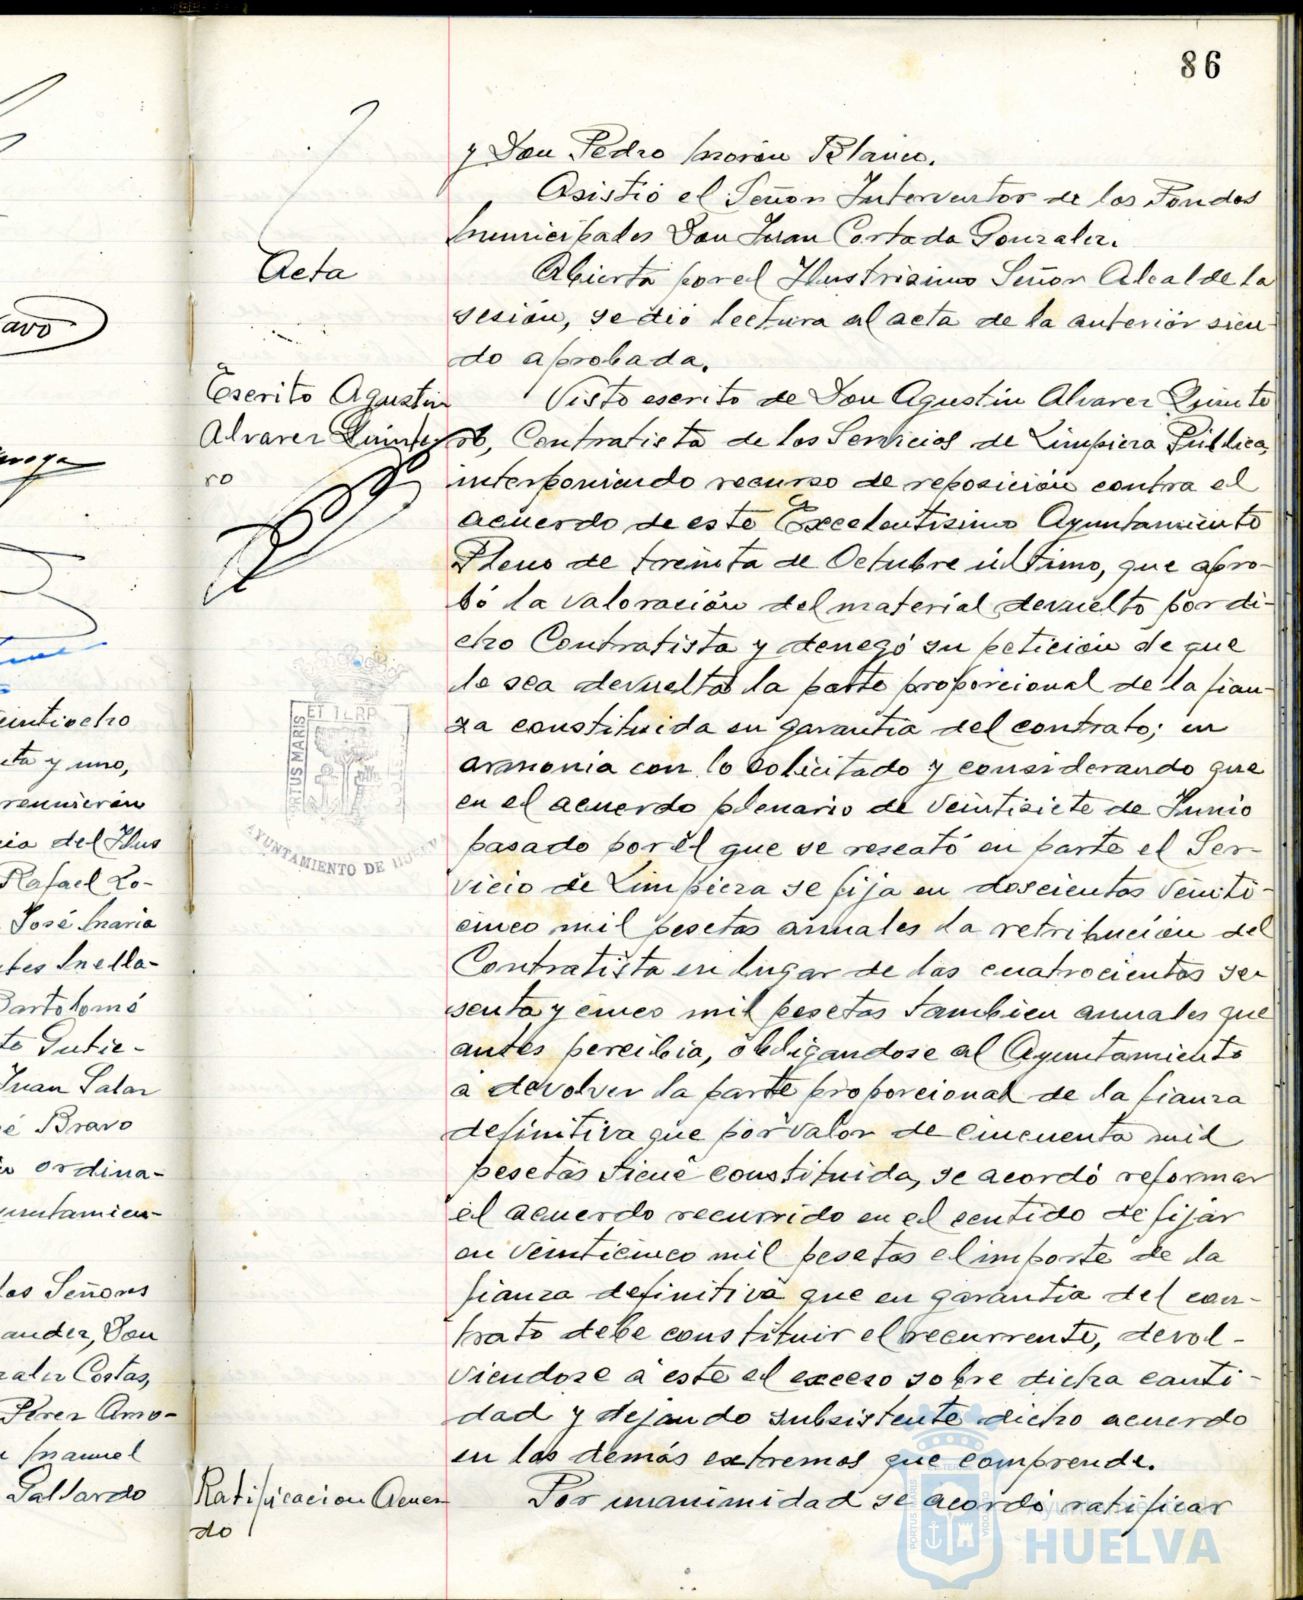 86
y Don Pedro Morón Blanco.
Asistió el Señor Interventor de los Fondos
Municipales Don Juan Cortada Gonzalez.
Acta
Abierta por el Ilustrisimo Señor Alcalde la
sesión, se dió lectura al acta de la anterior sien-
do aprobada.
Escrito Agustin
Alvarez Quinte
ro
Visto escrito de Don Agustin Alvarez Quinte
ro, Contratista de los Servicios de Limpieza Pública,
interponiendo recurso de reposición contra el
acuerdo de este Excelentisimo Ayuntamiento
Pleno de treinta de Octubre último, que apro-
bó la valoración del material devuelto por di-
cho Contratista y denegó su petición de que
le sea devuelta la parte proporcional de la fian-
za constituida en garantia del contrato; en
armonia con lo solicitado y considerando que
en el acuerdo plenario de veintisiete de Junio
pasado por el que se rescató en parte el Ser-
vicio de Limpieza se fija en doscientas veinti-
cinco mil pesetas anuales la retribución del
Contratista en lugar de las cuatrocientas se-
senta y cinco mil pesetas tambien anuales que
antes percibia, obligandose al Ayuntamiento
a devolver la parte proporcional de la fianza
definitiva que por valor de cincuenta mil
pesetas tiene constituida, se acordó reformar
el acuerdo recurrido en el sentido de fijar
en veinticinco mil pesetas el importe de la
fianza definitiva que en garantia del con-
trato debe constituir el recurrente, devol-
viendose a este el exceso sobre dicha canti-
dad y dejando subsistente dicho acuerdo
en los demás extremos que comprende.
Ratificacion Acuer
do
Por unanimidad se acordó ratificar
ET TERR
PORTUS MARIS
AYUNTAMIENTO DE HUELVA
Ayuntamiento de
HUELVA
avo
eintiocho
nta y uno,
reunierón
cia del Ilus
Rafael Lo-
José Maria
tes Mella-
Bartolomé
to Gutie-
Juan Salar
é Bravo
ordina-
untamien-
los Señores
ander, Don
zalez Costas,
Perez Amo-
Manuel
Gallardo